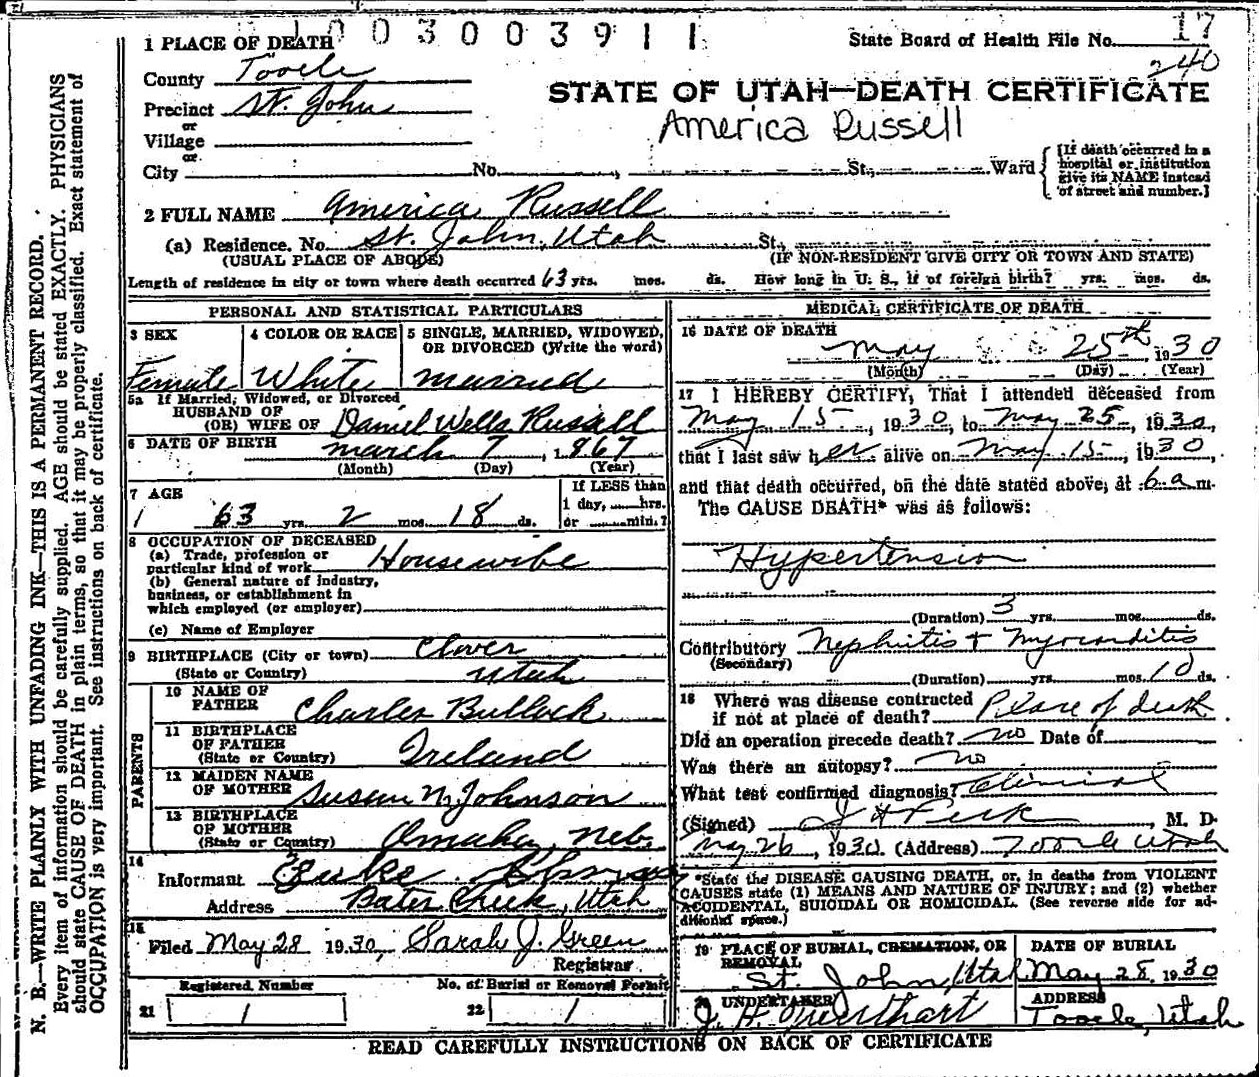 1003003911
State Board of Health File No. 17
240
1 PLACE OF DEATH
County Tooele
STATE OF UTAH—DEATH CERTIFICATE
Precinct St. John
America Russell
or
Village
or
City No. , St., Ward
[If death occurred in a hospital or institution give its NAME instead of street and number.]
2 FULL NAME America Russell
(a) Residence. No. St. John, Utah St.,
(USUAL PLACE OF ABODE) (IF NON-RESIDENT GIVE CITY OR TOWN AND STATE)
Length of residence in city or town where death occurred 63 yrs. mos. ds. How long in U. S., if of foreign birth? yrs. mos. ds.
PERSONAL AND STATISTICAL PARTICULARS
3 SEX
Female
4 COLOR OR RACE
White
5 SINGLE, MARRIED, WIDOWED, OR DIVORCED (Write the word)
married
5a If Married, Widowed, or Divorced
HUSBAND OF
(OR) WIFE OF Daniel Wells Russell
6 DATE OF BIRTH march 7, 1867
(Month) (Day) (Year)
7 AGE
63 yrs. 2 mos. 18 ds.
If LESS than
1 day, hrs.
or min.?
8 OCCUPATION OF DECEASED
(a) Trade, profession or
particular kind of work Housewife
(b) General nature of industry,
business, or establishment in
which employed (or employer)
(c) Name of Employer
9 BIRTHPLACE (City or town) Clover
(State or Country) Utah
PARENTS
10 NAME OF
FATHER Charles Bullock
11 BIRTHPLACE
OF FATHER Ireland
(State or Country)
12 MAIDEN NAME
OF MOTHER Susan N. Johnson
13 BIRTHPLACE
OF MOTHER Omaha, Neb.
(State or Country)
14
Informant
Address Bates Creek, Utah
15
Filed May 28 1930, Sarah J. Green
Registrar
Registered Number
21 1
No. of Burial or Removal Permit
22 1
MEDICAL CERTIFICATE OF DEATH
16 DATE OF DEATH
May 25th 1930
(Month) (Day) (Year)
17 I HEREBY CERTIFY, That I attended deceased from
May 15, 1930, to May 25, 1930,
that I last saw her alive on May 15, 1930,
and that death occurred, on the date stated above, at 6 a m.
The CAUSE DEATH* was as follows:
Hypertension
(Duration) 3 yrs. mos. ds.
Contributory Nephritis + myocarditis
(Secondary)
(Duration) yrs. mos. 10 ds.
18 Where was disease contracted
if not at place of death? Place of death
Did an operation precede death? no Date of
Was there an autopsy? no
What test confirmed diagnosis? Clinical
(Signed) J H Peck, M. D.
May 26, 1930 (Address) Tooele Utah
*State the DISEASE CAUSING DEATH, or, in deaths from VIOLENT
CAUSES state (1) MEANS AND NATURE OF INJURY; and (2) whether
ACCIDENTAL, SUICIDAL OR HOMICIDAL. (See reverse side for ad-
ditional space.)
19 PLACE OF BURIAL, CREMATION, OR
REMOVAL
St. John, Utah
DATE OF BURIAL
May 28, 1930
20 UNDERTAKER
J. H.
ADDRESS
Tooele, Utah
READ CAREFULLY INSTRUCTIONS ON BACK OF CERTIFICATE
N. B.—WRITE PLAINLY WITH UNFADING INK—THIS IS A PERMANENT RECORD.
Every item of information should be carefully supplied. AGE should be stated EXACTLY. PHYSICIANS
should state CAUSE OF DEATH in plain terms, so that it may be properly classified. Exact statement of
OCCUPATION is very important. See instructions on back of certificate.